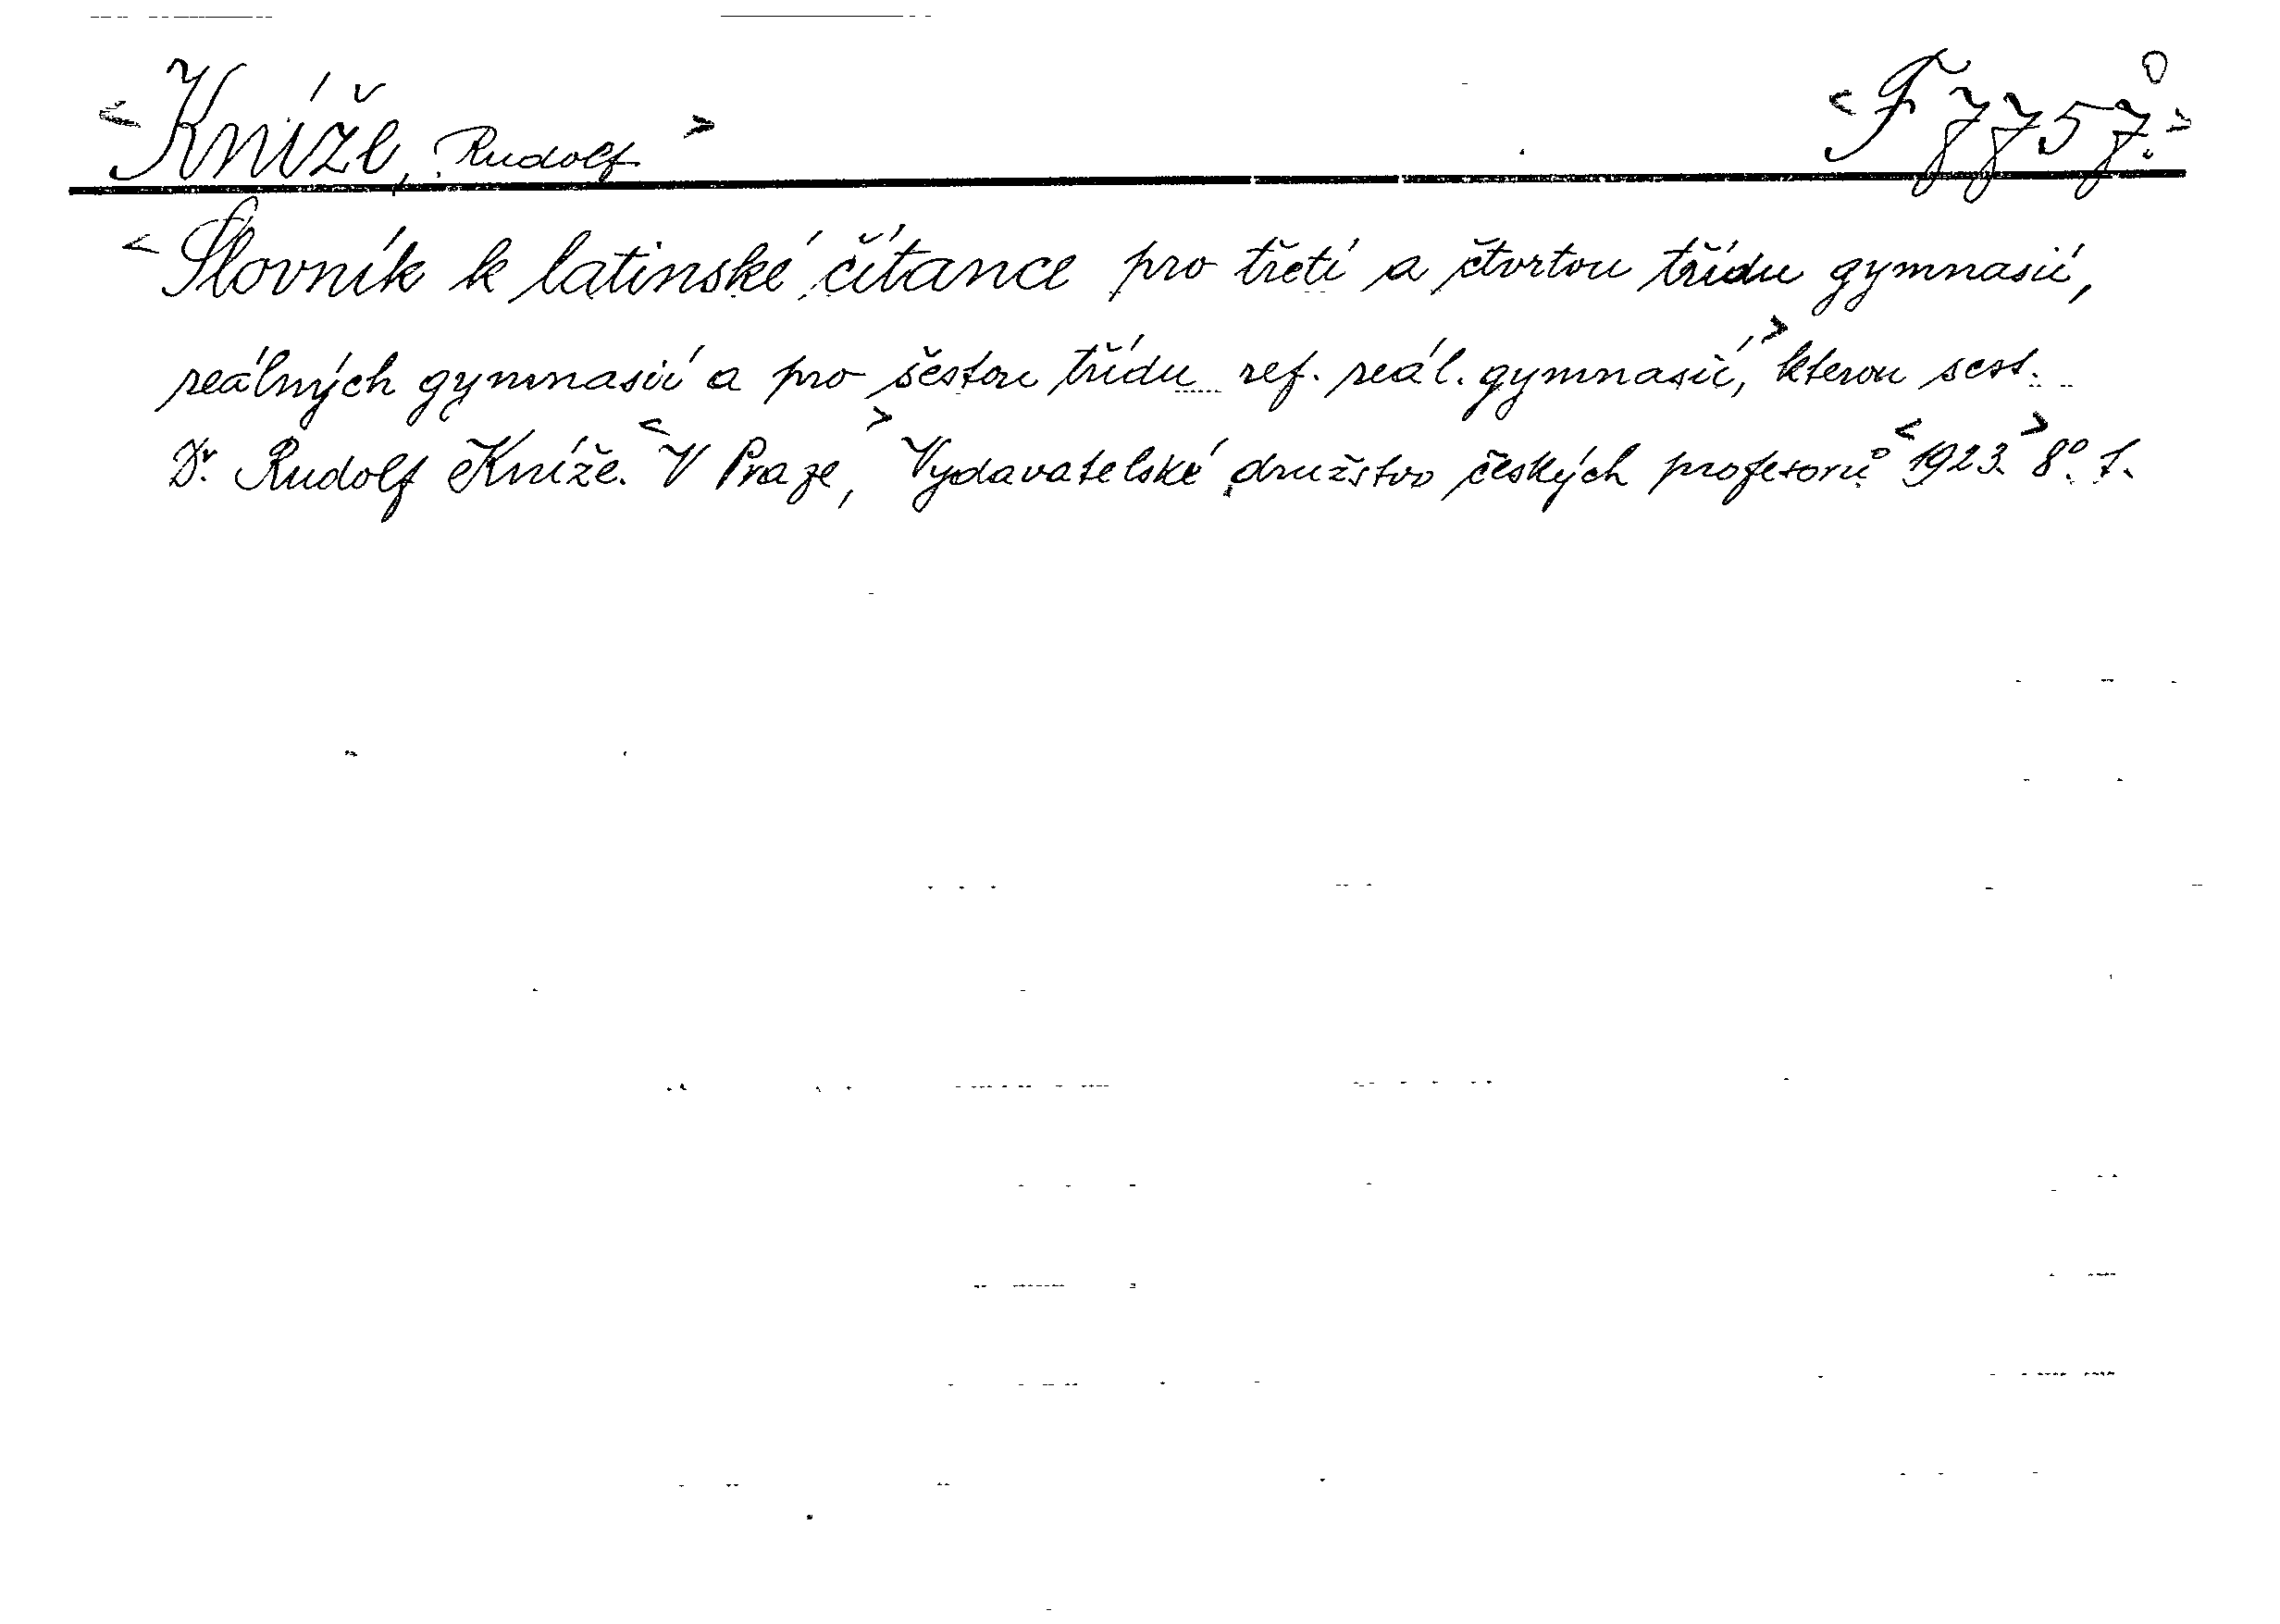 <Kníže, Rudolf> <F 7757.>
<Slovník k latinské čítance pro třetí a čtvrtou třídu gymnasií,
reálných gymnasií a pro šestou třídu ref. reál. gymnasií,> kterou sest.
Dr. Rudolf Kníže. <V Praze,> Vydavatelské družstvo českých profesorů <1923.> 8º. 1.